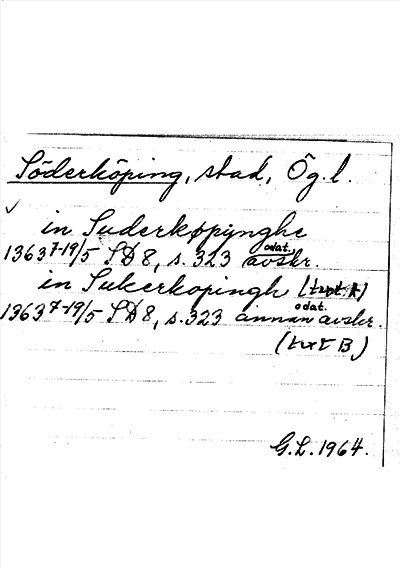 Söderköping, stad, Ög.l.
in Suderkøpynghe
1363 7-19/5 SD 8, s. 323 odat. avskr.
in Sukerkopingh (txt A)
1363 7-19/5 SD 8, s. 323 odat. annan avskr.
(txt B)
G.L. 1964.